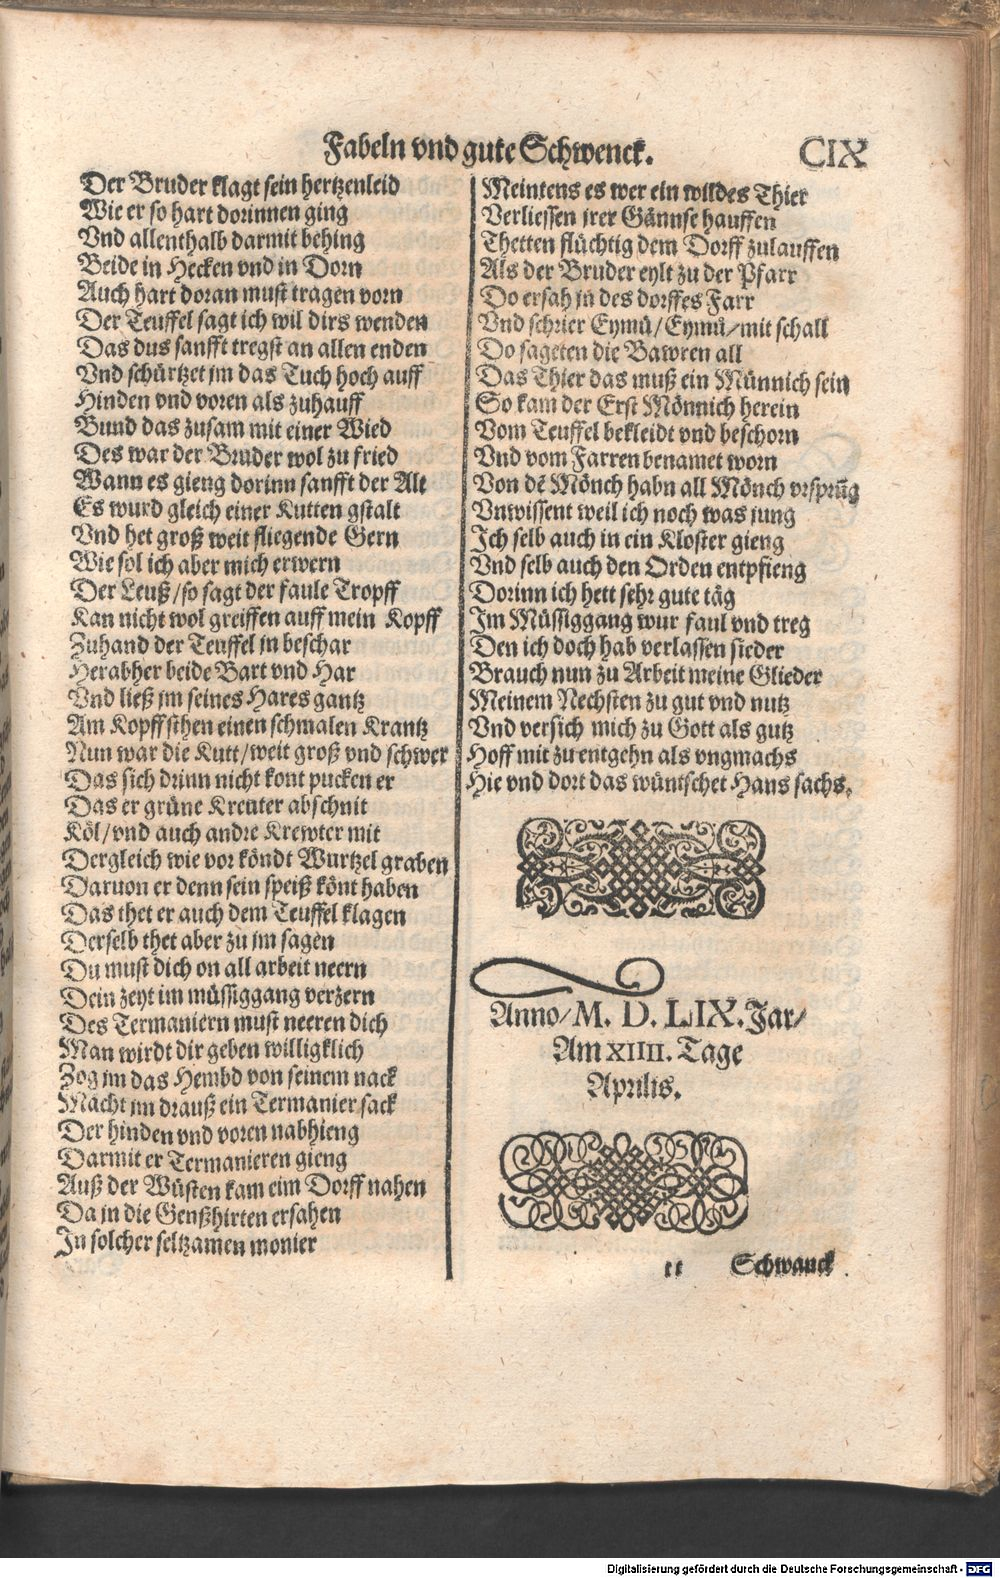 Fabeln vnd gute Schwenck. CIX
Der Bruder klagt sein hertzenleid
Wie er so hart dorinnen ging
Vnd allenthalb darmit behing
Beide in Hecken vnd in Dorn
Auch hart doran must tragen vorn
Der Teuffel sagt ich wil dirs wenden
Das dus sanfft tregst an allen enden
Vnd schürtzet jm das Tuch hoch auff
Hinden vnd voren als zuhauff
Bund das zusam mit einer Wied
Des war der Bruder wol zu fried
Wann es gieng dorinn sanfft der Alt
Es wurd gleich einer Kutten gstalt
Vnd het groß weit fliegende Gern
Wie sol ich aber mich erwern
Der Leuß/so sagt der faule Tropff
Kan nicht wol greiffen auff mein Kopff
Zuhand der Teuffel jn beschar
Herabher beide Bart vnd Har
Vnd ließ jm seines Hares gantz
Am Kopff sthen einen schmalen Krantz
Nun war die Kutt/weit groß vnd schwer
Das sich drinn nicht kont pucken er
Das er grüne Kreuter abschnit
Köl/vnd auch andre Krewter mit
Dergleich wie vor köndt Wurtzel graben
Daruon er denn sein speiß könt haben
Das thet er auch dem Teuffel klagen
Derselb thet aber zu jm sagen
Du must dich on all arbeit neern
Dein zeyt im müssiggang verzern
Des Termaniern must neeren dich
Man wirdt dir geben willigklich
Zog jm das Hembd von seinem nack
Macht jm drauß ein Termanier sack
Der hinden vnd voren nabhieng
Darmit er Termanieren gieng
Auß der Wüsten kam eim Dorff nahen
Da jn die Genßhirten ersahen
In solcher seltzamen monier
Meintens es wer ein wildes Thier
Verliessen jrer Gännse hauffen
Thetten flüchtig dem Dorff zulauffen
Als der Bruder eylt zu der Pfarr
Do ersah jn des dorffes Farr
Vnd schrier Eymü/Eymü/mit schall
Do sageten die Bawren all
Das Thier das muß ein Münnich sein
So kam der Erst Mönnich herein
Vom Teuffel bekleidt vnd beschorn
Vnd vom Farren benamet worn
Von dē Mönch habn all Mönch vrsprūg
Vnwissent weil ich noch was jung
Ich selb auch in ein Kloster gieng
Vnd selb auch den Orden entpfieng
Dorinn ich hett sehr gute täg
Im Müssiggang wur faul vnd treg
Den ich doch hab verlassen sieder
Brauch nun zu Arbeit meine Glieder
Meinem Nechsten zu gut vnd nutz
Vnd versich mich zu Gott als gutz
Hoff mit zu entgehn als vngmachs
Hie vnd dort das wüntschet Hans sachs.
Anno/M. D. LIX. Jar/
Am XIIII. Tage
Aprilis.
tt Schwanck
Digitalisierung gefördert durch die Deutsche Forschungsgemeinschaft - DFG